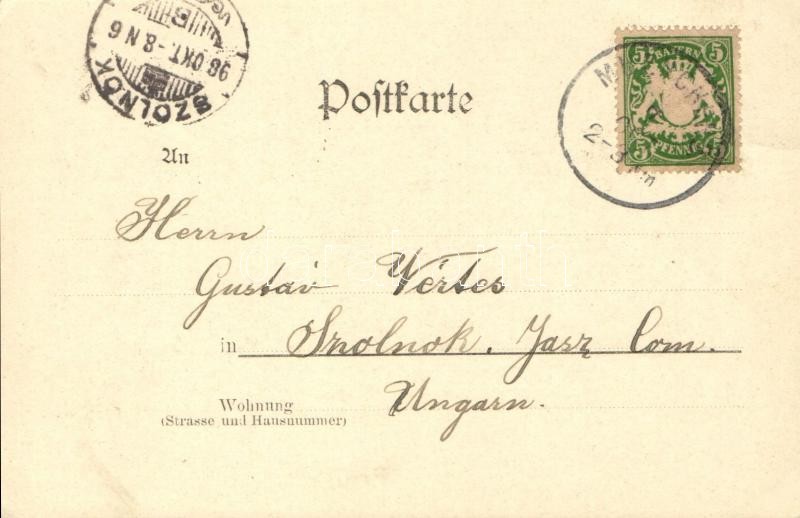 SZOLNOK
98 OKT.-8 N 6
BAYERN
5 5
5 PFENNIG 5
2-3 Nm
Postkarte
An
Herrn
Gustav Vértes
in Szolnok. Jasz Com.
Ungarn.
Wohnung
(Strasse und Hausnummer)